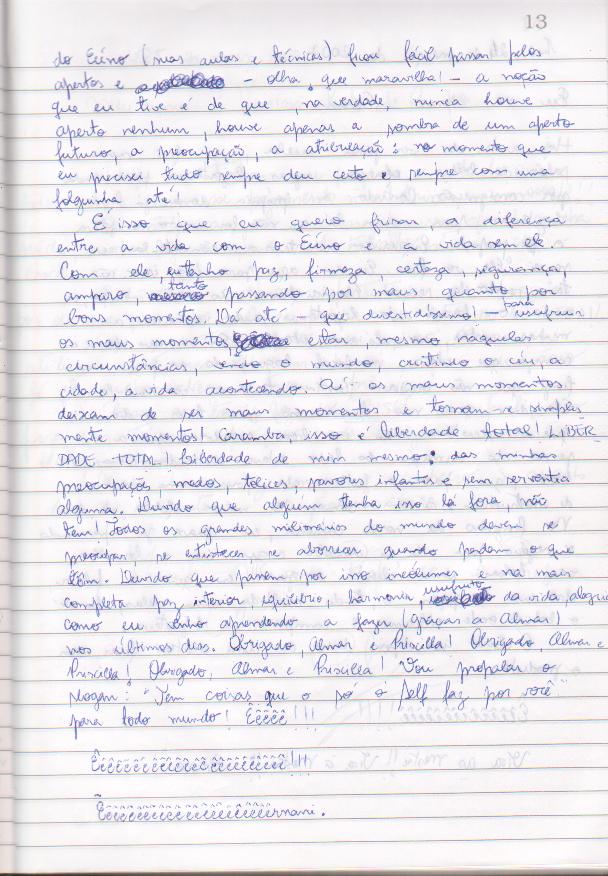 13
do Eúno (suas aulas e técnicas) ficou fácil passar pelos
apertos e - olha, que maravilha! - a noção
que eu tive é de que, na verdade, nunca houve
aperto nenhum, houve apenas a sombra de um aperto
futuro, a preocupação, a atribulação: no momento que
eu precisei tudo sempre deu certo e sempre com uma
folguinha até!
É isso que eu quero frisar, a diferença
entre a vida com o Eúno e a vida sem ele.
Com ele, eu tenho paz, firmeza, certeza, segurança,
amparo, tanto passando por maus quanto por
bons momentos. Dá até - que divertidíssimo! - para usufruir
os maus momentos, estar, mesmo naquelas
circunstâncias, vendo o mundo, curtindo o céu, a
cidade, a vida acontecendo. Aí os maus momentos
deixam de ser maus momentos e tornam-se simples
mente momentos! Caramba, isso é liberdade total! LIBER
DADE TOTAL! Liberdade de mim mesmo; das minhas
preocupações, medos, tolices, pavores infantis e sem serventia
alguma. Duvido que alguém tenha isso lá fora, não
tem! Todos os grandes milionários do mundo devem se
preocupar, se entristecer, se aborrecer quando perdem o que
têm. Duvido que passem por isso incólumes e na mais
completa paz interior, equilíbrio, harmonia, usufruto da vida,
como eu venho aprendendo a fazer (graças a Almar)
nos últimos dias. Obrigado, Almar e Priscilla! Obrigado, Almar e
Priscilla! Obrigado, Almar e Priscilla! Vou propalar o
slogan: "Tem coisas que o só o Self faz por você"
para todo mundo! Êêêêê!!!